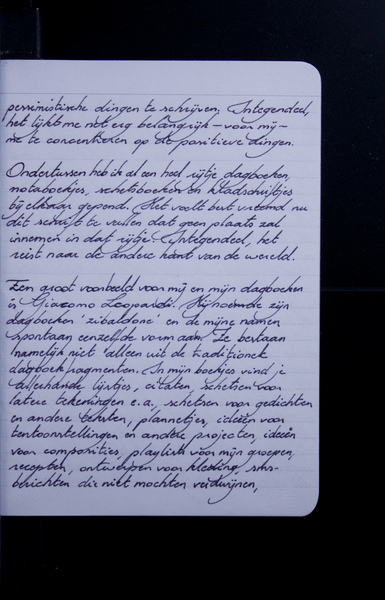 pessimistische dingen te schrijven. Integendeel,
het lijkt me net erg belangrijk – voor mij –
me te concentreren op de positieve dingen.
Ondertussen heb ik al een heel rijtje dagboeken,
notaboekjes, schetsboeken en kladschriftjes
bij elkaar gepend. Het voelt best vreemd nu
dit schrift te vullen dat geen plaats zal
innemen in dat rijtje. Integendeel, het
reist naar de andere kant van de wereld.
Een groot voorbeeld voor mij en mijn dagboeken
is Giacomo Leopardi. Hij noemde zijn
dagboeken 'zibaldone' en de mijne namen
spontaan eenzelfde vorm aan. Ze bestaan
namelijk niet alleen uit de traditionele
dagboekfragmenten. In mijn boekjes vind je
allerhande lijstjes, citaten, schetsen voor
latere tekeningen e.a., schetsen voor gedichten
en andere teksten, plannetjes, ideeën voor
tentoonstellingen en andere projecten, ideeën
voor composities, playlists voor mijn groepen,
recepten, ontwerpen voor kleding, sms-
berichten die niet mochten verdwijnen,